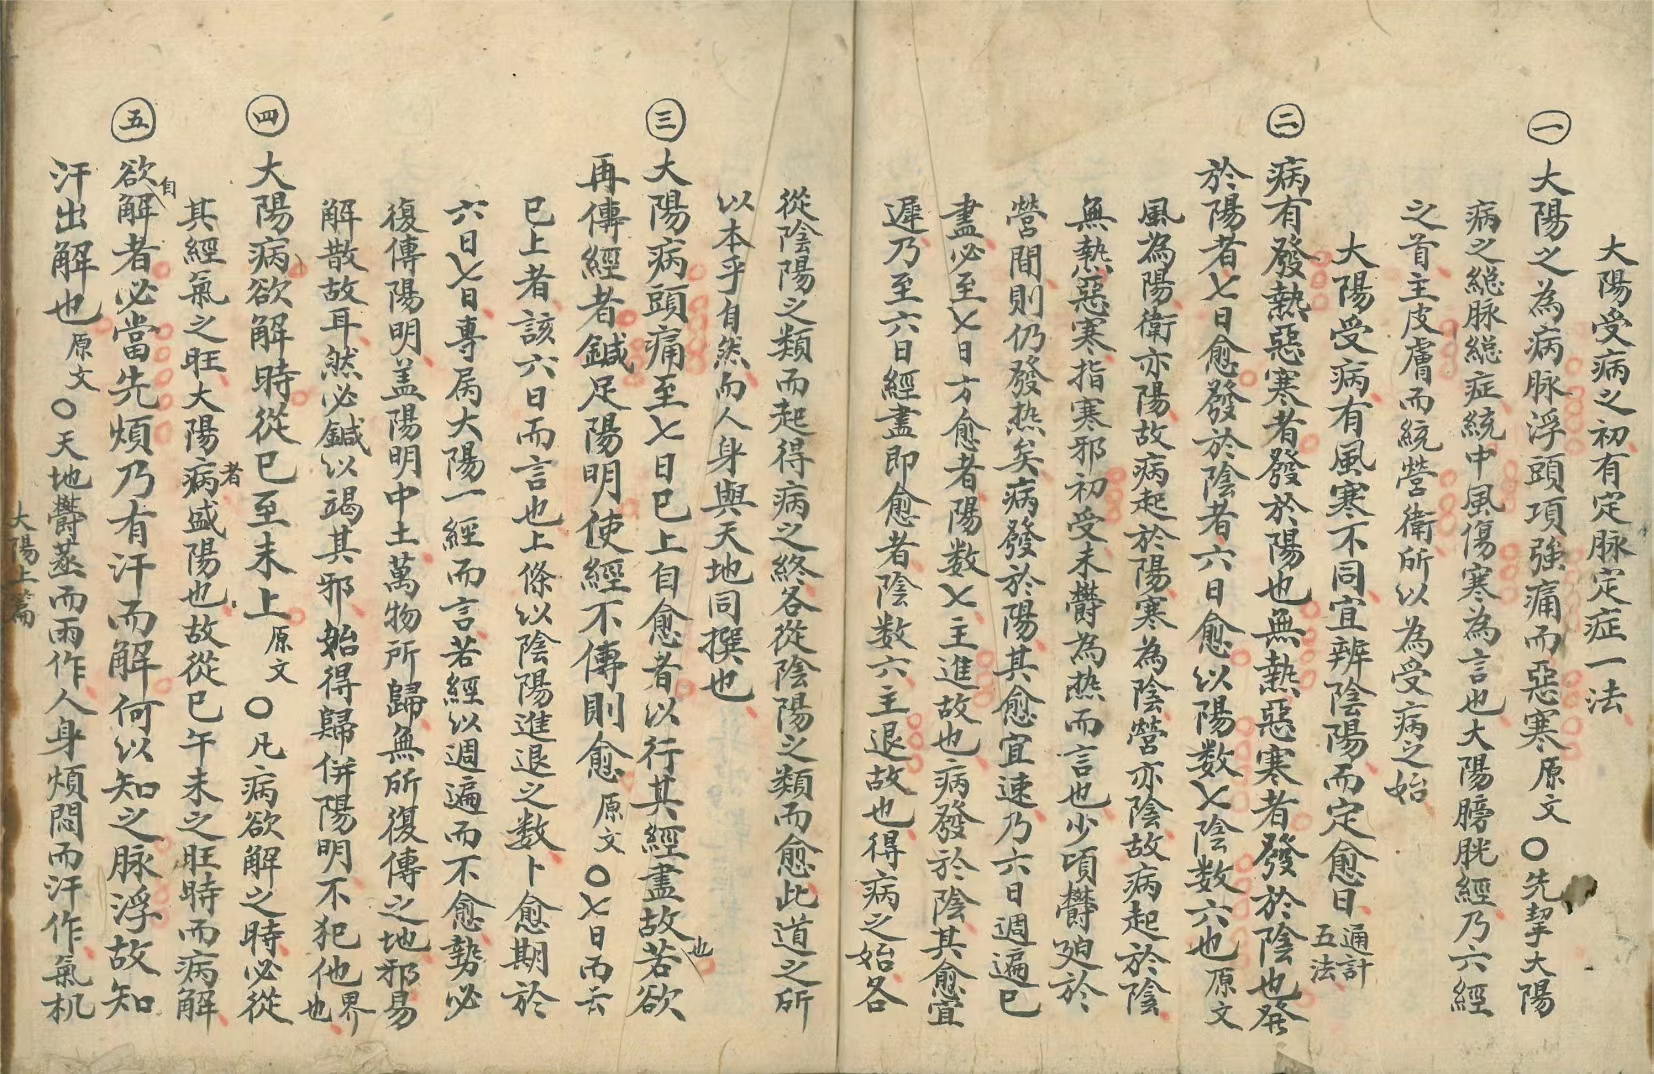 大陽受病之初有定脉定症一法
㊀大陽之為病脉浮頭項強痛而惡寒原文〇先挈大陽
病之緫脉緫症統中風傷寒為言也大陽膀胱經乃六經
之首主皮膚而統營衛所以為受病之始
大陽受病有風寒不同宜辨陰陽而定愈日通計五法
㊁病有發熱惡寒者發於陽也無熱惡寒者發於陰也發
於陽者七日愈發於陰者六日愈以陽数七陰数六也原文
風為陽衛亦陽故病起於陽寒為陰營亦陰故病起於陰
無熱惡寒指寒邪初受未欝為热而言也少頃欝廹於
營間則仍發热矣病發於陽其愈宜速乃六日週遍已
盡必至七日方愈者陽数七主進故也病發於陰其愈宜
遲乃至六日經盡即愈者陰数六主退故也得病之始各
從陰陽之類而起得病之終各從陰陽之類而愈此道之所
以本乎自然而人身與天地同撰也
㊂大陽病頭痛至七日已上自愈者以行其經盡故也若欲
再傳經者鍼足陽明使經不傳則愈原文〇七日而云
已上者該六日而言也上條以陰陽進退之数卜愈期於
六日七日專属大陽一經而言若經以週遍而不愈勢必
復傳陽明盖陽明中土萬物所歸無所復傳之地邪易
解散故耳然必鍼以竭其邪始得歸併陽明不犯他界也
㊃大陽病欲解時從巳至未上原文〇凡病欲解之時必從
其經氣之旺大陽病者盛陽也故從巳午未之旺時而病解
㊄欲自解者必當先煩乃有汗而解何以知之脉浮故知
汗出解也原文〇天地欝蒸而雨作人身煩悶而汗作氣机
大陽上篇